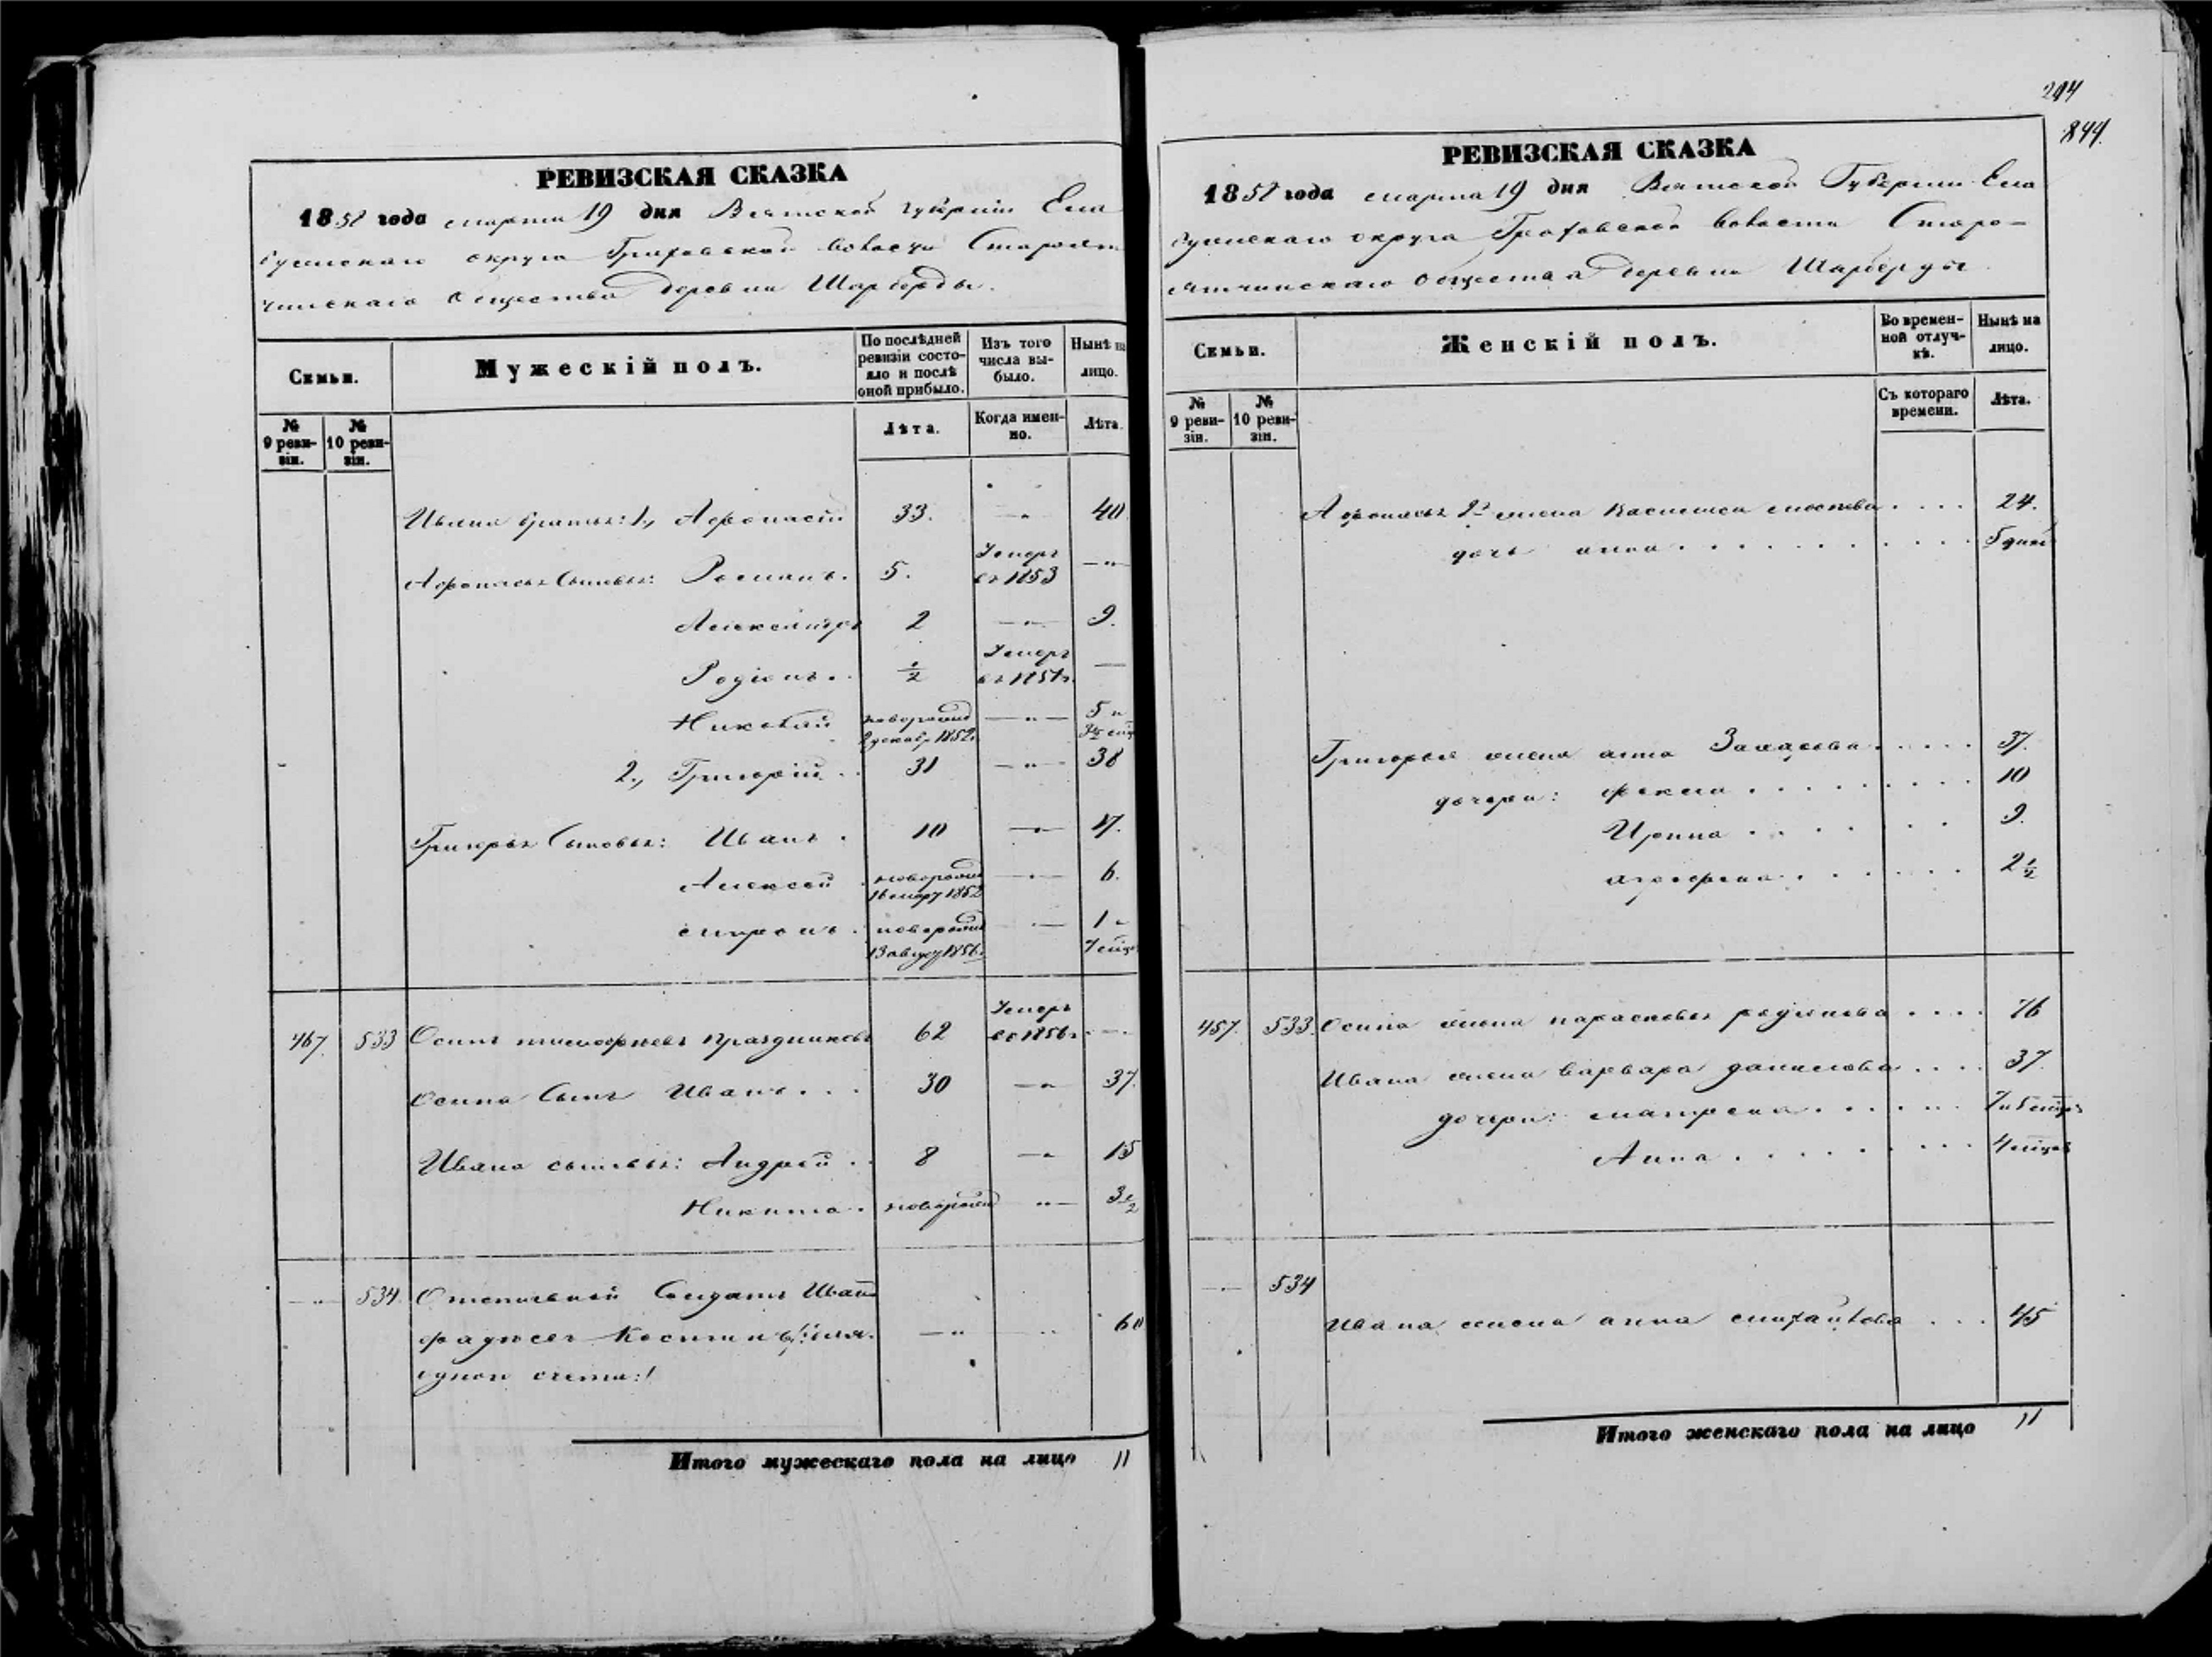 РЕВИЗСКАЯ СКАЗКА
1858 года марта 19 дня Вятской губернии Ела
бужскаго округа Граховской волости Староят
чинскаго общества деревни Шарберды.
Семьи.
Мужескій полъ.
По послѣдней ревизіи состояло и послѣ оной прибыло.
Изъ того числа выбыло.
Нынѣ на лицо.
№ 9 ревизіи.
№ 10 ревизіи.
Лѣта.
Когда именно.
Лѣта.
Ивана братья: 1., Афонасій 33. —"— 40
Афонасья сыновья: Романъ. 5. Умеръ въ 1853 —"—
Александръ 2 —"— 9.
Родіонъ. ½ Умеръ въ 1851г. —
Николай новорожд 2 декаб. 1852. —"— 5 и
2., Григорій 31 —"— 38
Григорья сыновья: Иванъ. 10 —"— 17.
Алексей новорожд 16 мар 1852 —"— 6.
Миронъ новорожд 13 август 1856. —"— 1 и 7 мѣс
467. 533 Осипъ Тимофеевъ Праздниковъ 62 Умеръ въ 1856г. —"—
Осипа сынъ Иванъ... 30 —"— 37.
Ивана сыновья: Андрей.. 8 —"— 15
Никита. новорожд —"— 3½
—"— 534. Отставной Солдатъ Иван
Фадѣевъ Костинъ /: для
одного счета :/ —"— " 60
Итого мужескаго пола на лицо 11
244
844.
РЕВИЗСКАЯ СКАЗКА
1858 года марта 19 дня Вятской Губернии Ела
бужскаго округа Граховской волости Старо-
ятчинскаго общества деревни Шарберды.
Семьи.
Женскій полъ.
Во временной отлучкѣ.
Нынѣ на лицо.
№ 9 ревизіи.
№ 10 ревизіи.
Съ котораго времени.
Лѣта.
Афонасья 2я жена Василиса 24.
дочь анна 5 дней
Григорья жена анна 37.
дочери: Фекла 10
Ирина 9.
аграфена 2½
457. 533. Осипа жена парасковья родионова 76
Ивана жена варвара данилова 37.
дочери: матрена 7 и 5 мѣсц
Анна 4 мѣсц
—"— 534
Ивана жена анна михайлова 45
Итого женскаго пола на лицо 11